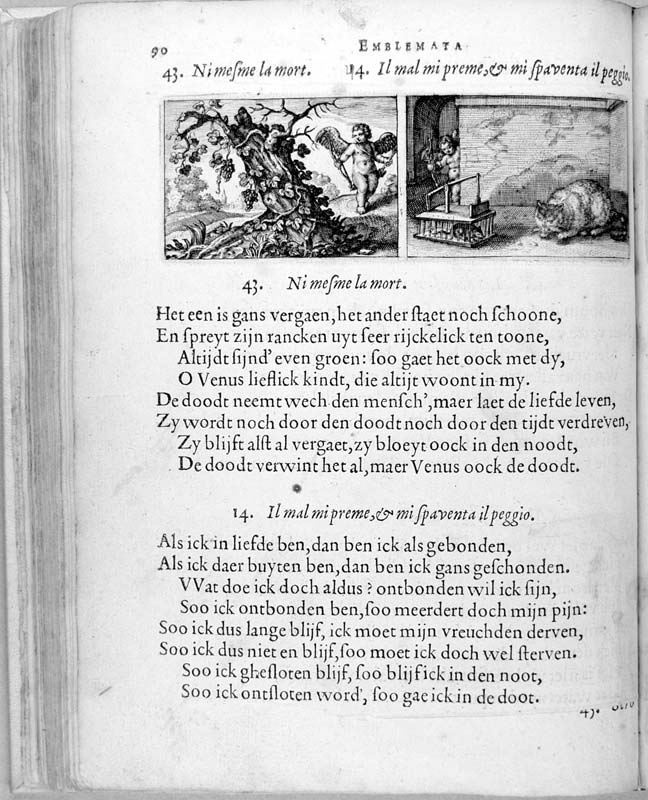 90 EMBLEMATA
43. Ni meſme la mort. 14. Il mal mi preme, & mi ſpaventa il peggio.
43. Ni meſme la mort.
Het een is gans vergaen, het ander ſtaet noch ſchoone,
En ſpreyt zijn rancken uyt ſeer rijckelick ten toone,
Altijdt ſijnd' even groen: ſoo gaet het oock met dy,
O Venus lieflick kindt, die altijt woont in my.
De doodt neemt wech den menſch', maer laet de liefde leven,
Zy wordt noch door den doodt noch door den tijdt verdreven,
Zy blijft alſt al vergaet, zy bloeyt oock in den noodt,
De doodt verwint het al, maer Venus oock de doodt.
14. Il mal mi preme, & mi ſpaventa il peggio.
Als ick in liefde ben, dan ben ick als gebonden,
Als ick daer buyten ben, dan ben ick gans geſchonden.
VVat doe ick doch aldus? ontbonden wil ick ſijn,
Soo ick ontbonden ben, ſoo meerdert doch mijn pijn:
Soo ick dus lange blijf, ick moet mijn vreuchden derven,
Soo ick dus niet en blijf, ſoo moet ick doch wel ſterven.
Soo ick gheſloten blijf, ſoo blijf ick in den noot,
Soo ick ontſloten word', ſoo gae ick in de doot.
43.